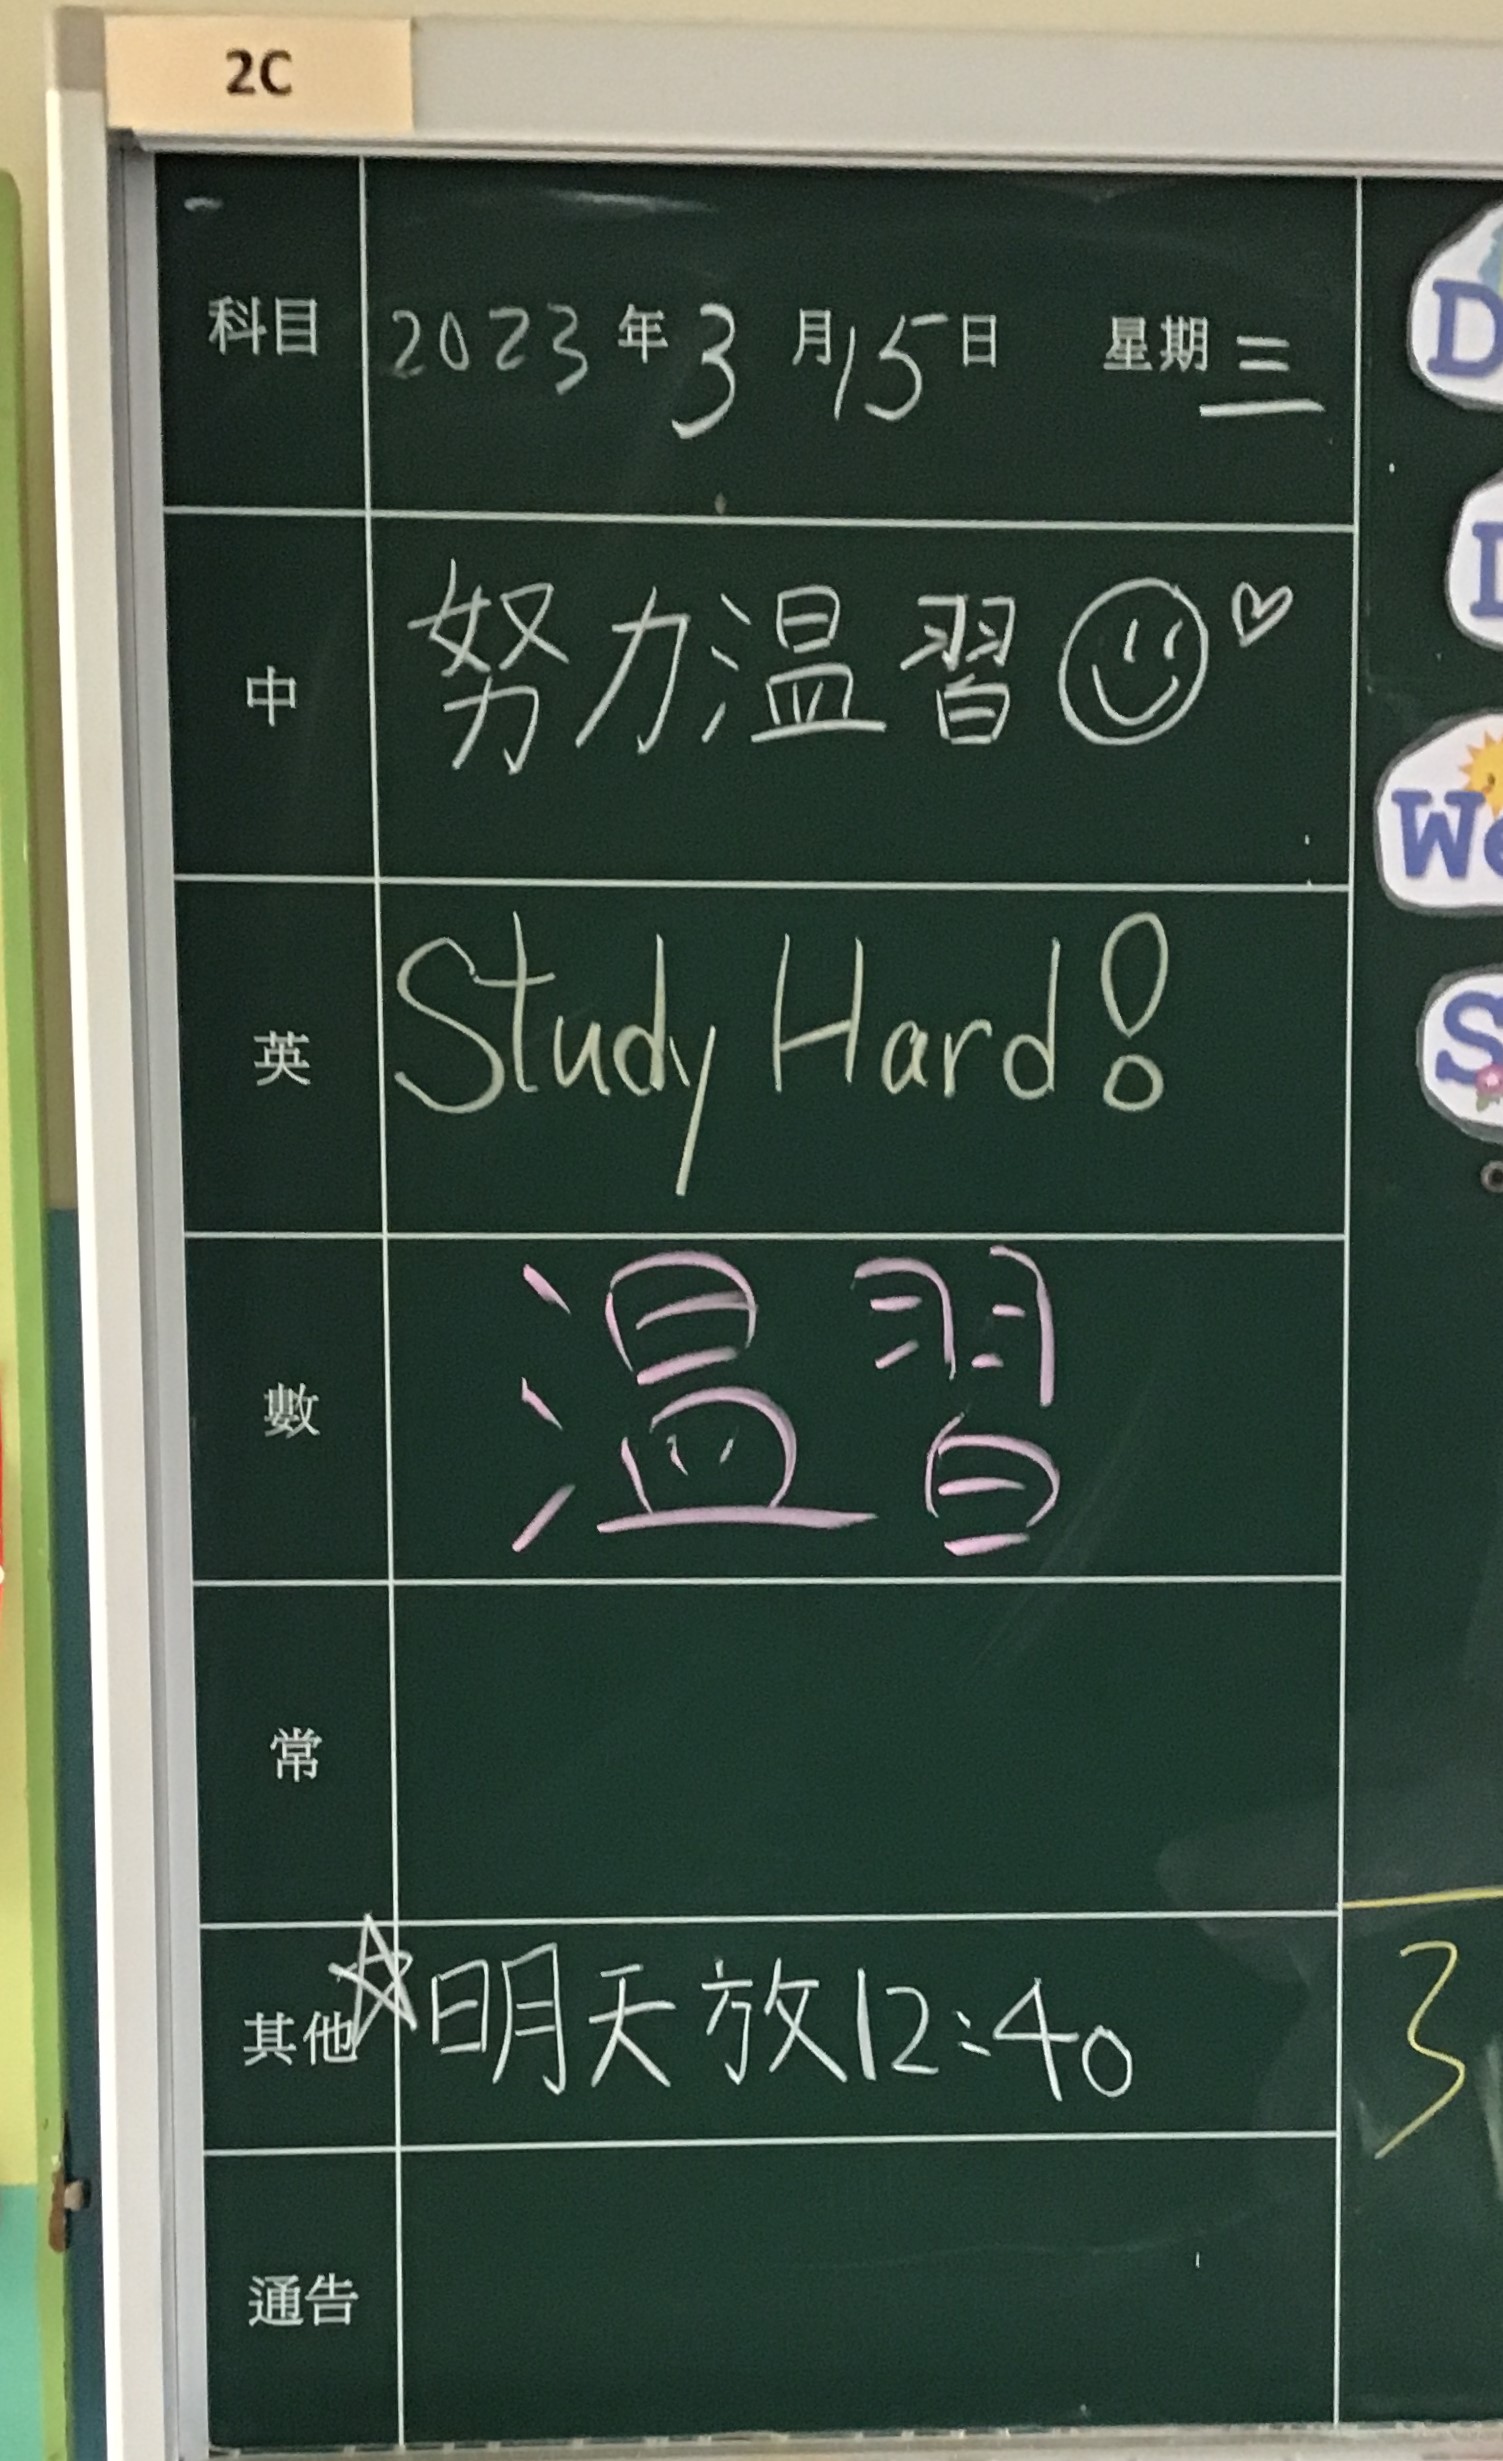 2C
科目 2023年3月15日 星期三
中 努力温習
英 Study Hard!
數 温習
常
其他 明天放12:40
通告
D
We
S
3